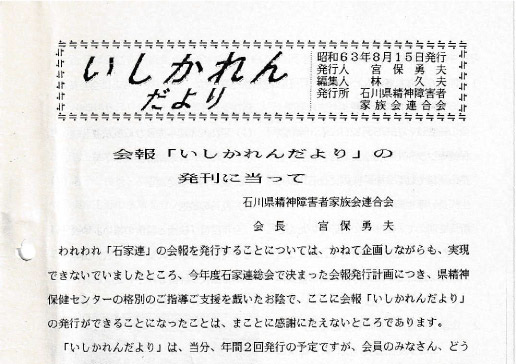 いしかれん
だより
昭和63年8月15日発行
発行人　宮保勇夫
編集人　林　久夫
発行所　石川県精神障害者
家族会連合会
会報「いしかれんだより」の
発刊に当って
石川県精神障害者家族会連合会
会長　宮保勇夫
われわれ「石家連」の会報を発行することについては、かねて企画しながらも、実現
できないでいましたところ、今年度石家連総会で決まった会報発行計画につき、県精神
保健センターの格別のご指導ご支援を戴いたお陰で、ここに会報「いしかれんだより」
の発行ができることになったことは、まことに感謝にたえないところであります。
「いしかれんだより」は、当分、年間2回発行の予定ですが、会員のみなさん、どう